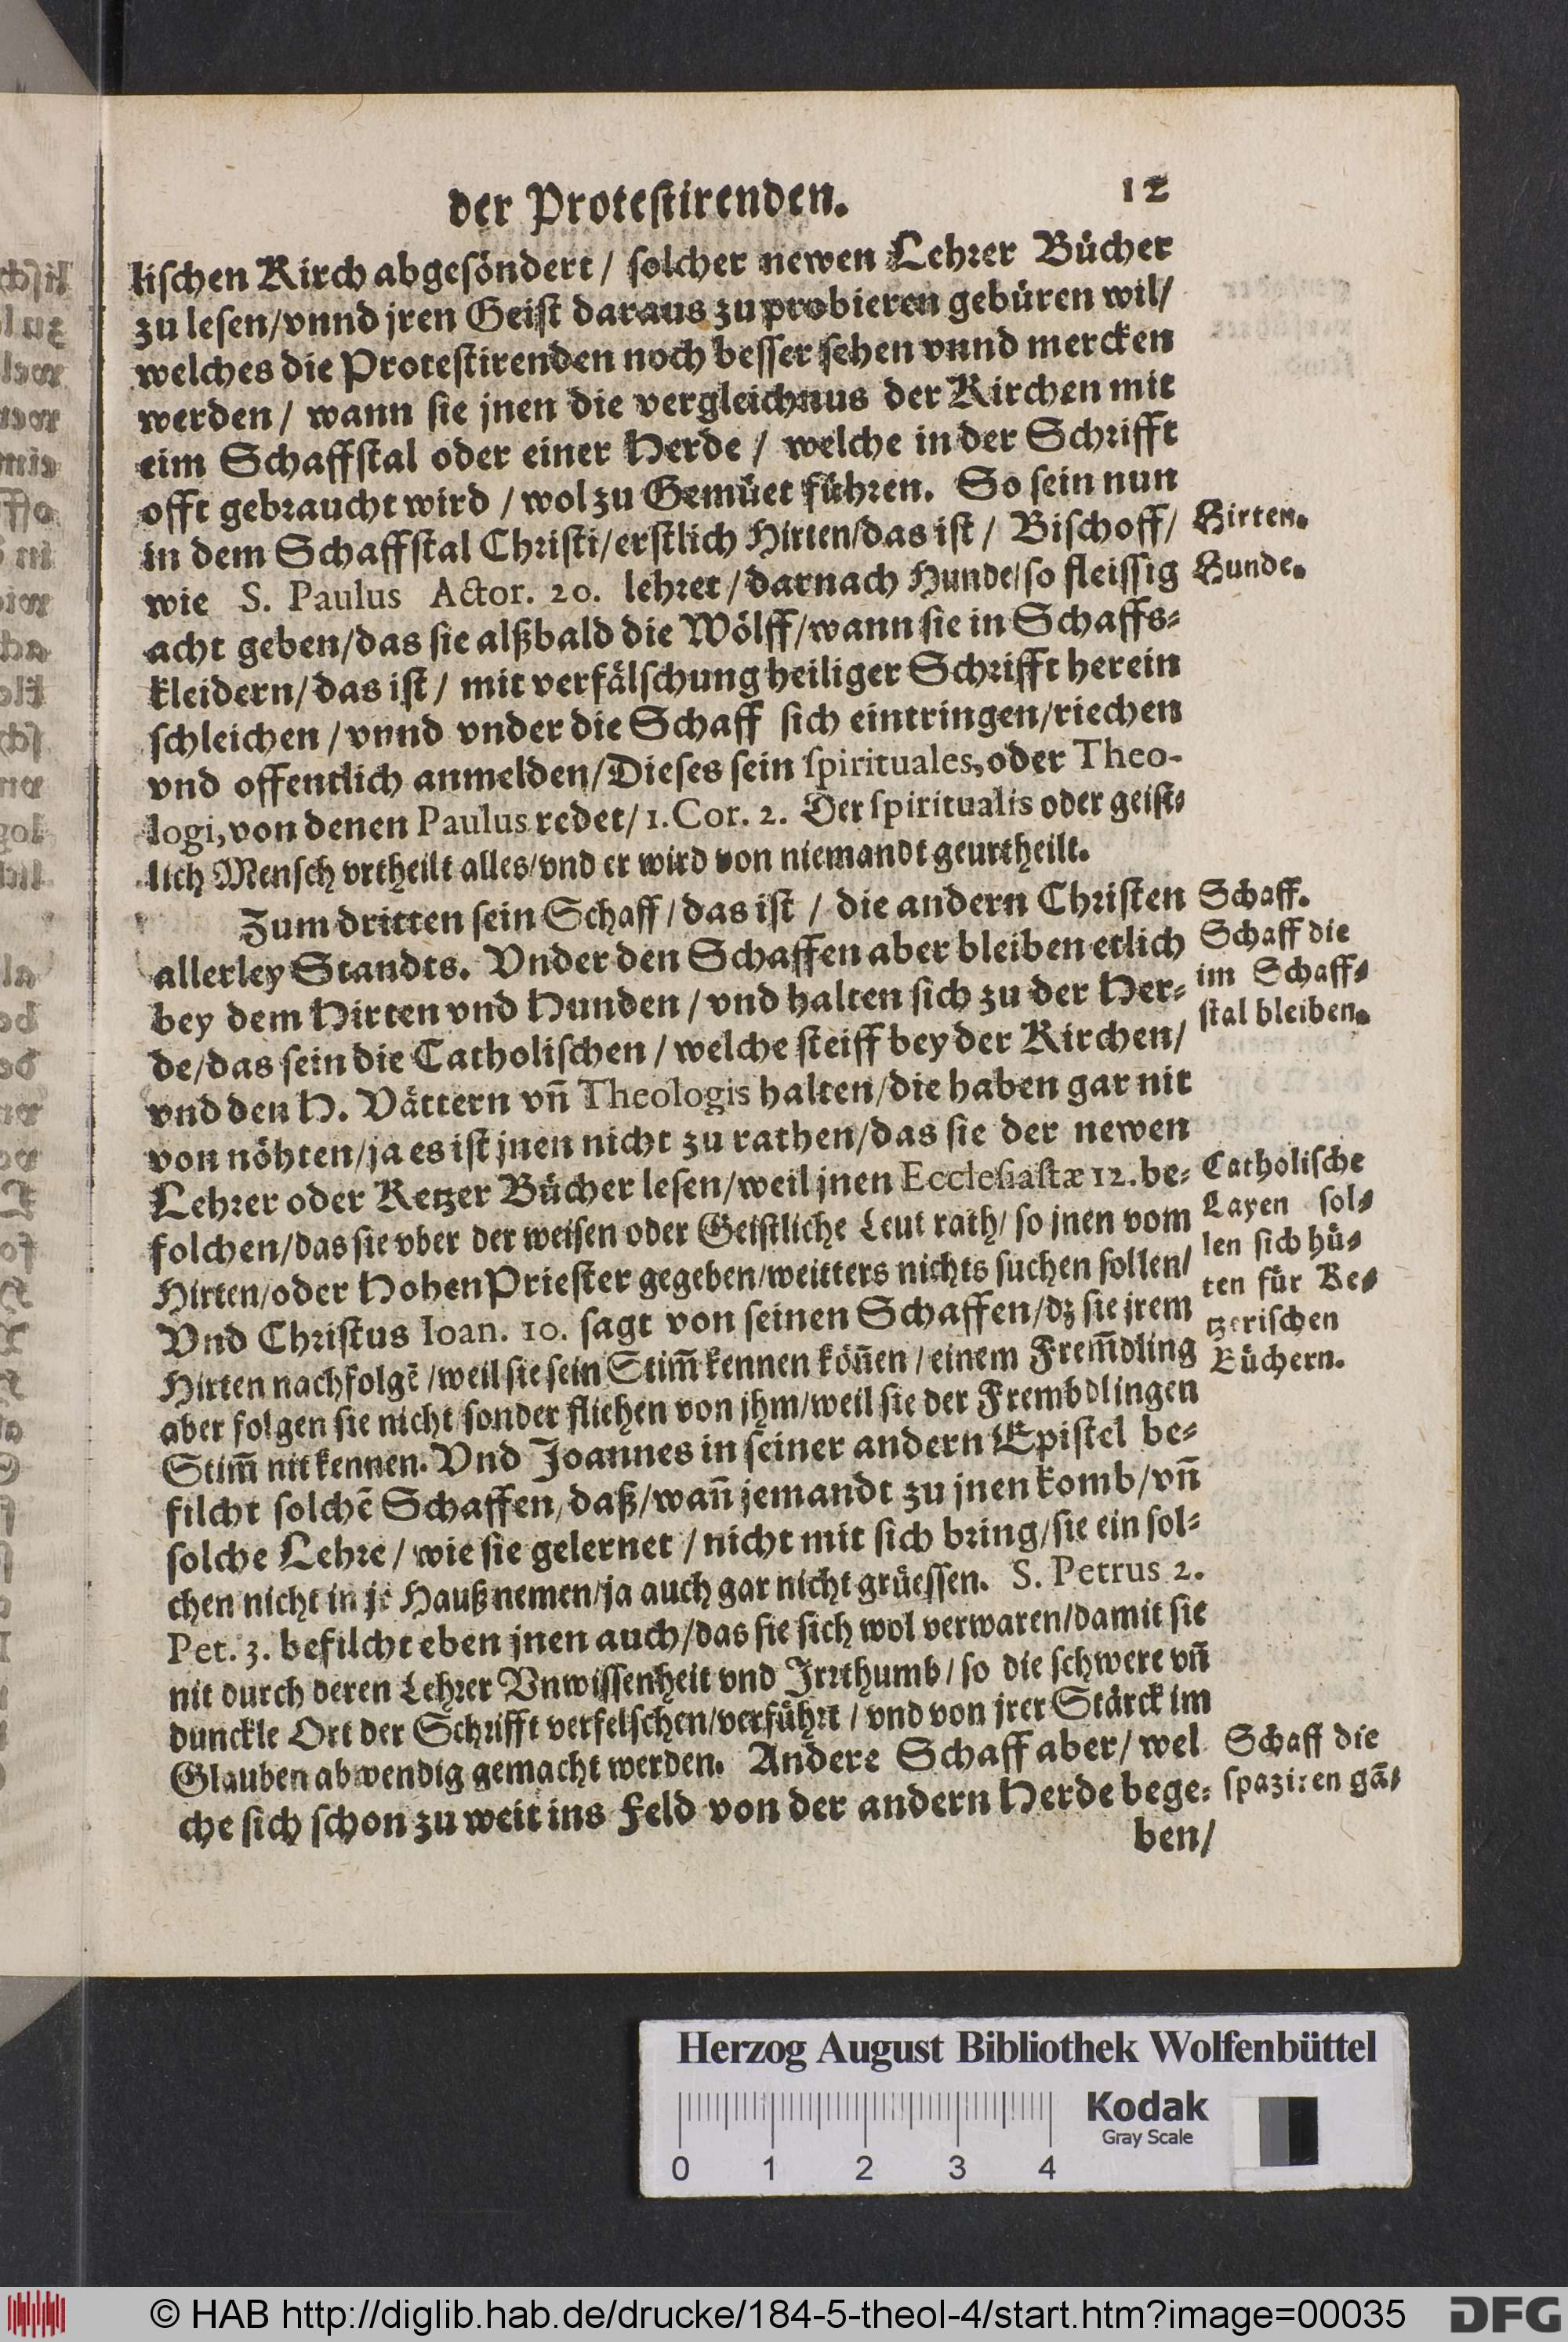 der Protestirenden.
12
lischen Kirch abgesöndert / solcher newen Lehrer Bücher
zu lesen/vnnd jren Geist daraus zu probieren gebüren wil/
welches die Protestirenden noch besser sehen vnnd mercken
werden / wann sie jnen die vergleichnus der Kirchen mit
eim Schaffstal oder einer Herde / welche in der Schrifft
offt gebraucht wird / wol zu Gemüet führen. So sein nun
in dem Schaffstal Christi/erstlich Hirten/das ist / Bischoff/
Hirten.
wie S. Paulus Actor. 20. lehret /darnach Hunde/so fleissig
Hunde.
acht geben/das sie alßbald die Wölff/wann sie in Schaffs-
kleidern/das ist / mit verfälschung heiliger Schrifft herein
schleichen /vnnd vnder die Schaff sich eintringen/riechen
vnd offentlich anmelden/Dieses sein spirituales, oder Theo-
logi, von denen Paulus redet/ 1. Cor. 2. Der spiritualis oder geist-
lich Mensch vrtheilt alles/vnd er wird von niemandt geurtheilt.
Zum dritten sein Schaff /das ist / die andern Christen
Schaff.
allerley Standts. Vnder den Schaffen aber bleiben etlich
Schaff die
bey dem Hirten vnd Hunden /vnd halten sich zu der Her-
im Schaff-
stal bleiben.
de/das sein die Catholischen /welche steiff bey der Kirchen/
vnd den H. Vättern vñ Theologis halten/die haben gar nit
von nöhten/ja es ist jnen nicht zu rathen/das sie der newen
Lehrer oder Ketzer Bücher lesen/weil jnen Ecclesiastæ 12. be-
Catholische
folchen/das sie vber der weisen oder Geistliche Leut rath/ so jnen vom
Layen sol-
Hirten/oder Hohen Priester gegeben/weitters nichts suchen sollen/
len sich hü-
ten für Ke-
Vnd Christus Ioan. 10. sagt von seinen Schaffen/dz sie jrem
tzerischen
Hirten nachfolgẽ /weil sie sein Stim̃ kennen köñen /einem Frem̃dling
Büchern.
aber folgen sie nicht/sonder fliehen von jhm/weil sie der Frembdlingen
Stim̃ nit kennen. Vnd Joannes in seiner andern Epistel be-
filcht solchẽ Schaffen, daß/wañ jemandt zu jnen komb/vñ
solche Lehre / wie sie gelernet /nicht mit sich bring/sie ein sol-
chen nicht in jr Hauß nemen/ja auch gar nicht grüessen. S. Petrus 2.
Pet. 3. befilcht eben jnen auch/das sie sich wol verwaren/damit sie
nit durch deren Lehrer Vnwissenheit vnd Irrthumb/ so die schwere vñ
dunckle Ort der Schrifft verfelschen/verführt / vnd von jrer Stärck im
Glauben abwendig gemacht werden. Andere Schaff aber/ wel
Schaff die
che sich schon zu weit ins Feld von der andern Herde bege-
spaziren gã-
ben/
Herzog August Bibliothek Wolfenbüttel
Kodak
Gray Scale
0 1 2 3 4
© HAB http://diglib.hab.de/drucke/184-5-theol-4/start.htm?image=00035
DFG